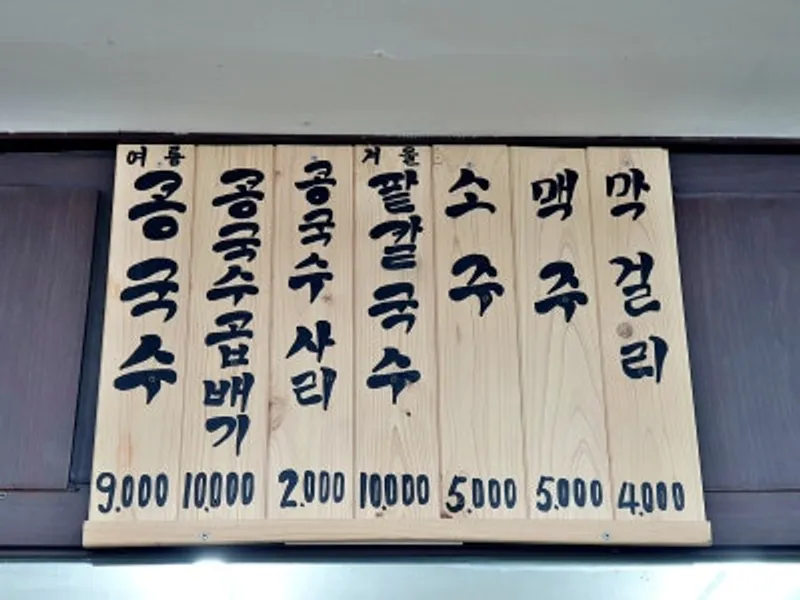 여름
콩국수
9.000
콩국수곱배기
10.000
콩국수사리
2.000
겨울
팥칼국수
10.000
소주
5.000
맥주
5.000
막걸리
4.000